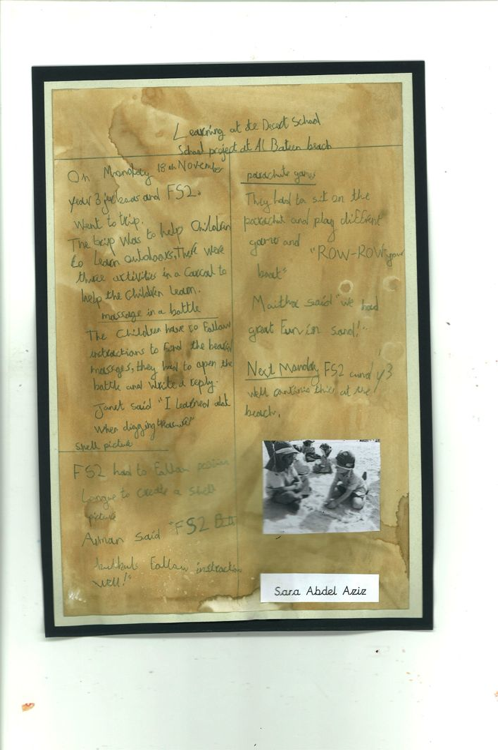 Learning at the Desert School
School project at AL Bateen beach
On Manday 18th November
year 3 and FS2.
Went to trip.
The trip was to help Children
to learn outdoors. There were
three activities in a to
help the Children learn.
massage in a battle
The Children have to Follow
intractions to Find the
massages, they had to open the
battle and write a reply.
Janet said "I learned alot
when digging
Shell picture
FS2 had to Follow
to create a shell
picture
Adnan said "FS2
Follow instraction
well!"
parachute game
They had to sit on the
parachut and play different
game and
"ROW-ROW your
boat"
Maitha said "we had
great Fun in sand!"
Next Manday FS2 and y3
will continue their at the
beach.
Sara Abdel Aziz